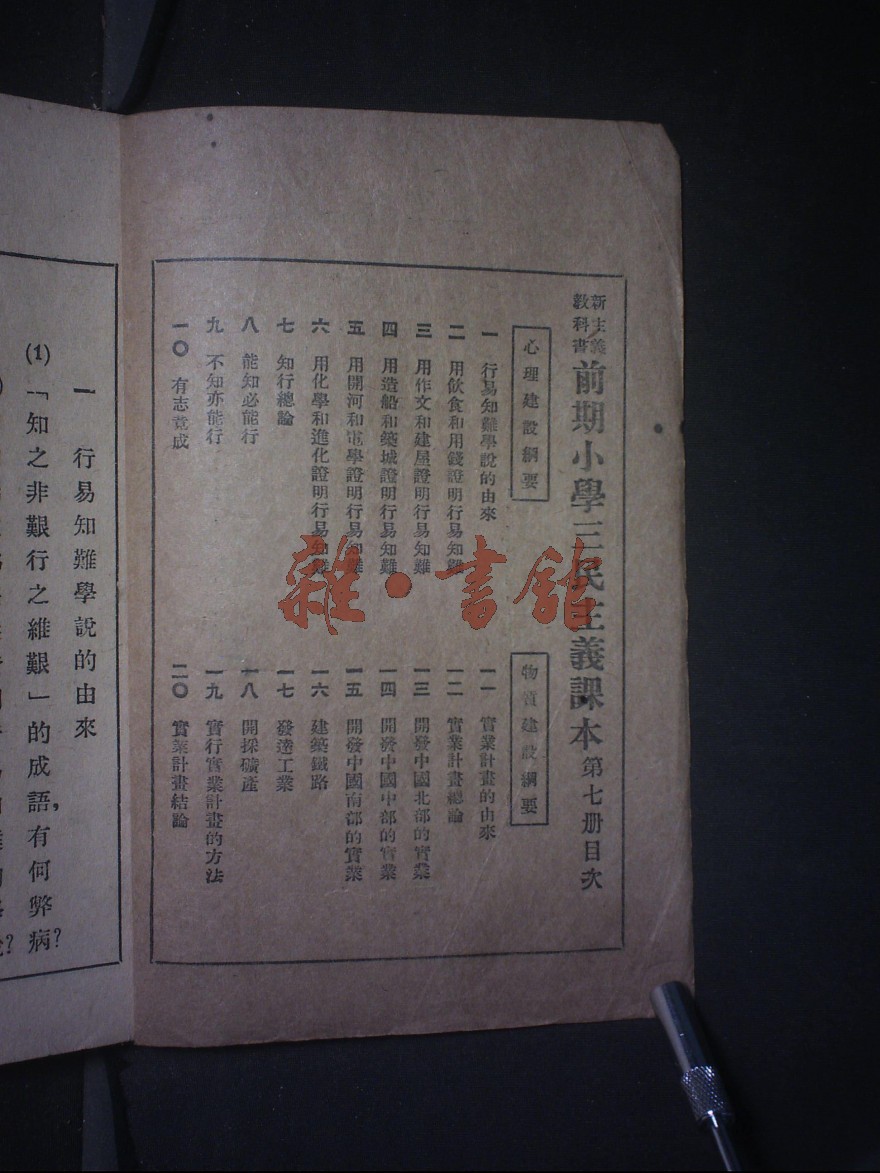 新主義
教科書
前期小學三民主義課本 第七册目次
心理建設綱要
一 行易知難學說的由來
二 用飲食和用錢證明行易知難
三 用作文和建屋證明行易知難
四 用造船和築城證明行易知難
五 用開河和電學證明行易知難
六 用化學和進化證明行易知難
七 知行總論
八 能知必能行
九 不知亦能行
一〇 有志竟成
物質建設綱要
一一 實業計畫的由來
一二 實業計畫總論
一三 開發中國北部的實業
一四 開發中國中部的實業
一五 開發中國南部的實業
一六 建築鐵路
一七 發達工業
一八 開採礦產
一九 實行實業計畫的方法
二〇 實業計畫結論
雜·書館
一 行易知難學說的由來
(1)「知之非艱行之維艱」的成語,有何弊病?